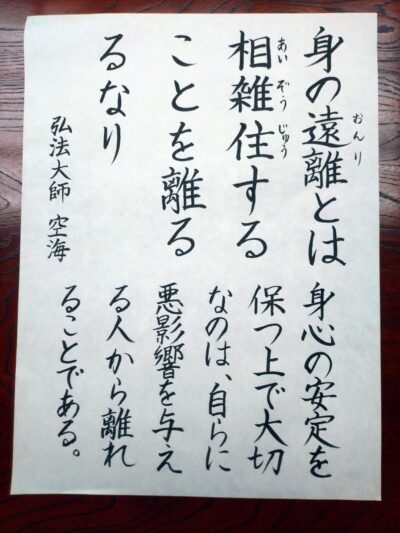 身の遠離とは
おんり
相雑住する
あいぞうじゅう
ことを離る
るなり
弘法大師 空海
身心の安定を
保つ上で大切
なのは、自らに
悪影響を与え
る人から離れ
ることである。